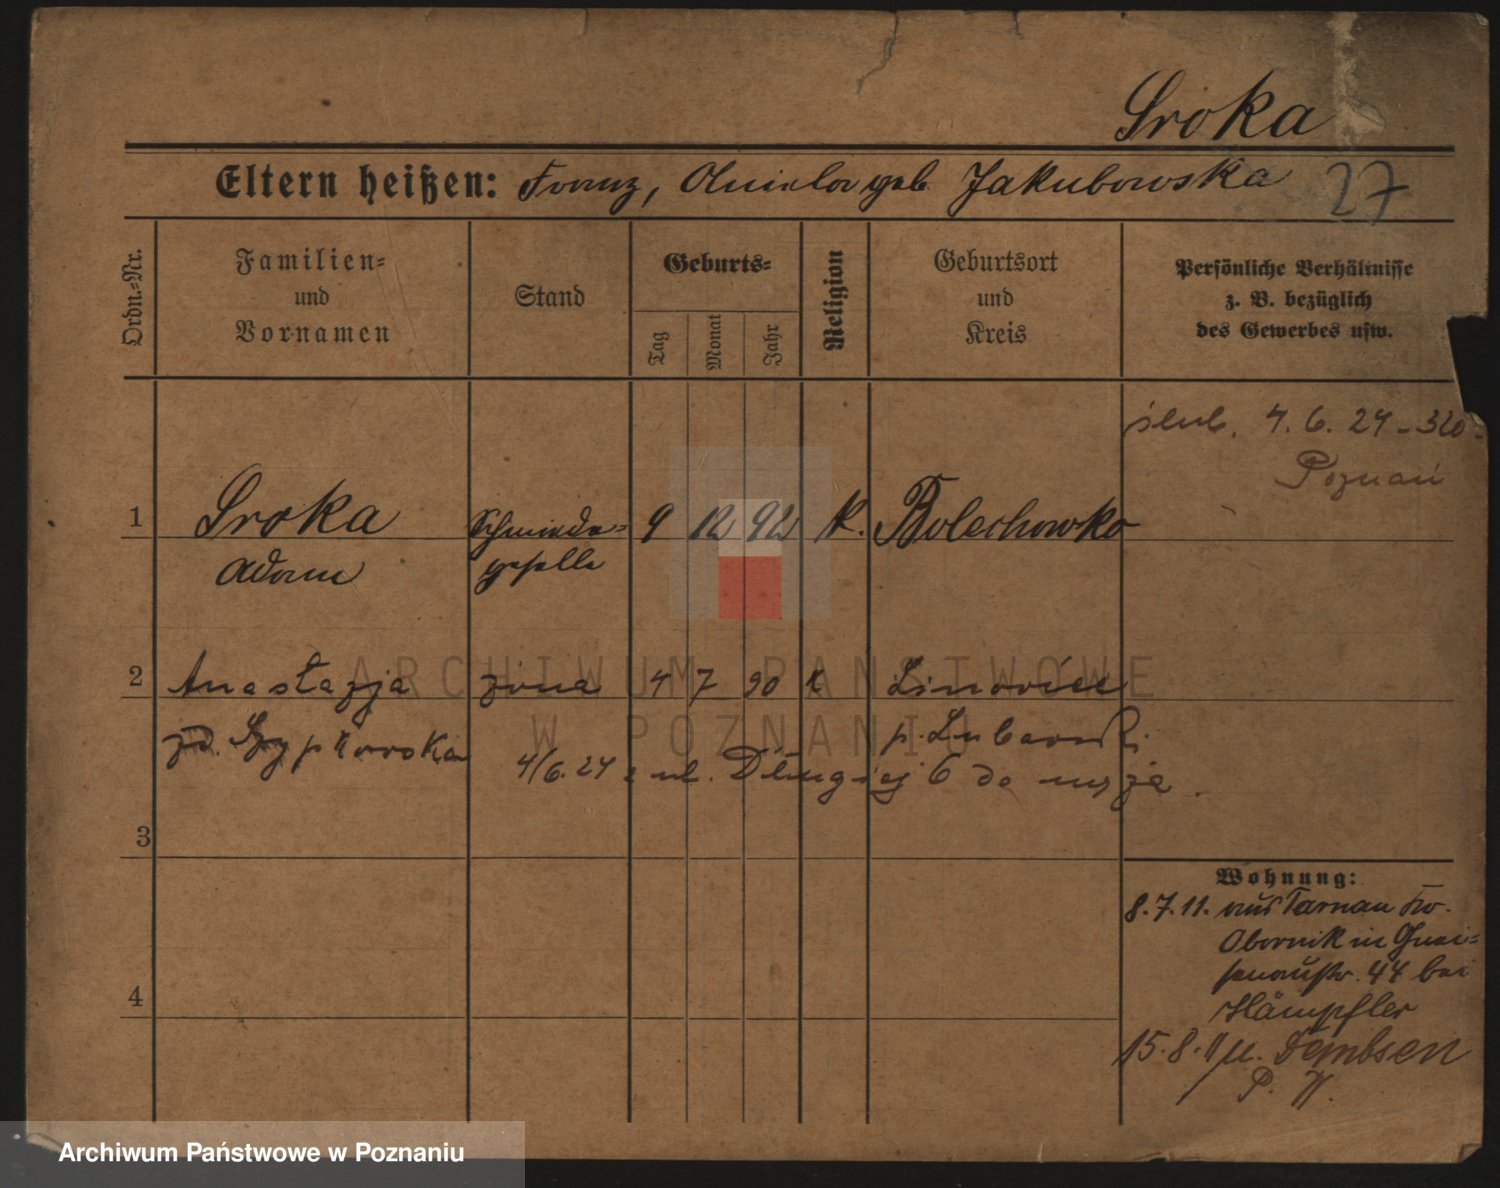 Sroka
Eltern heißen: Franz, geb. Jakubowska 27
Ordn.-Nr.
Familien- und Vornamen
Stand
Geburts-
Tag
Monat
Jahr
Religion
Geburtsort und Kreis
Persönliche Verhältnisse
z. B. bezüglich
des Gewerbes usw.
ślub. 4. 6. 24 - 320 -
Poznań
1 Sroka Schmiede= 9 12 92 K. Bolechowko
Adam geselle
2 Anastazja żona 4 7 90 K
zd.
4/6. 24 z ul. Długiej 6 do męża.
3
4
Wohnung:
8. 7. 11. aus Tarnau Kr.
Obornik in Gnei=
senaustr. 44 bei
15. 8. 11 n. Dembsen
P. W.
ARCHIWUM PAŃSTWOWE
W POZNANIU
Archiwum Państwowe w Poznaniu